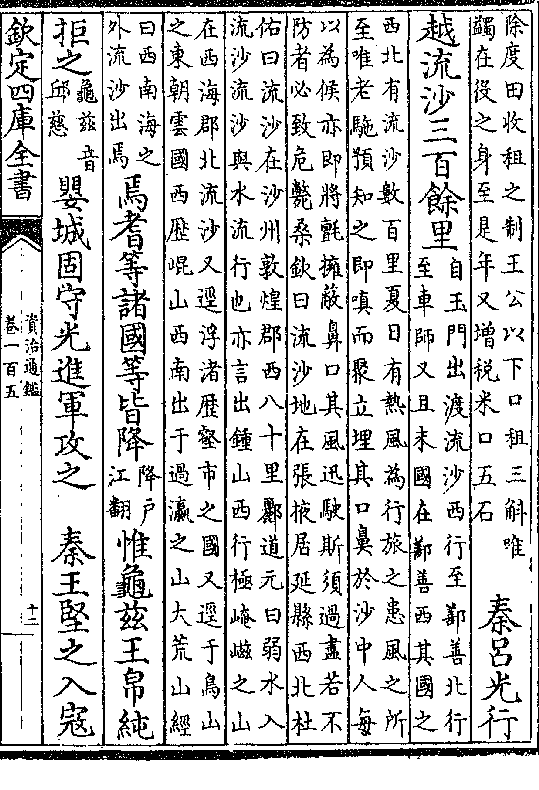 除度田收租之制王公以下口租三斛唯
蠲在役之身至是年又增稅米口五石
秦呂光行
越流沙三百餘里
自玉門出渡流沙西行至鄯善北行
至車師又且末國在鄯善西其國之
西北有流沙數百里夏日有熱風為行旅之患風之所
至唯老駞預知之即嗔而聚立埋其口鼻於沙中人每
以為候亦即將氈擁蔽鼻口其風迅駛斯須過盡若不
防者必致危斃桑欽曰流沙地在張掖居延縣西北杜
佑曰流沙在沙州敦煌郡西八十里酈道元曰弱水入
流沙流沙與水流行也亦言出鍾山西行極崦嵫之山
在西海郡北流沙又逕浮渚歷壑市之國又逕于鳥山
之東朝雲國西歷崐山西南出于過瀛之山大荒山經
曰西南海之
外流沙出焉
焉耆等諸國等皆降
降户
江翻
惟龜兹王帛純
拒之
龜兹音
邱慈
嬰城固守光進軍攻之　秦王堅之入寇
欽定四庫全書
資治通鑑
卷一百五
十二